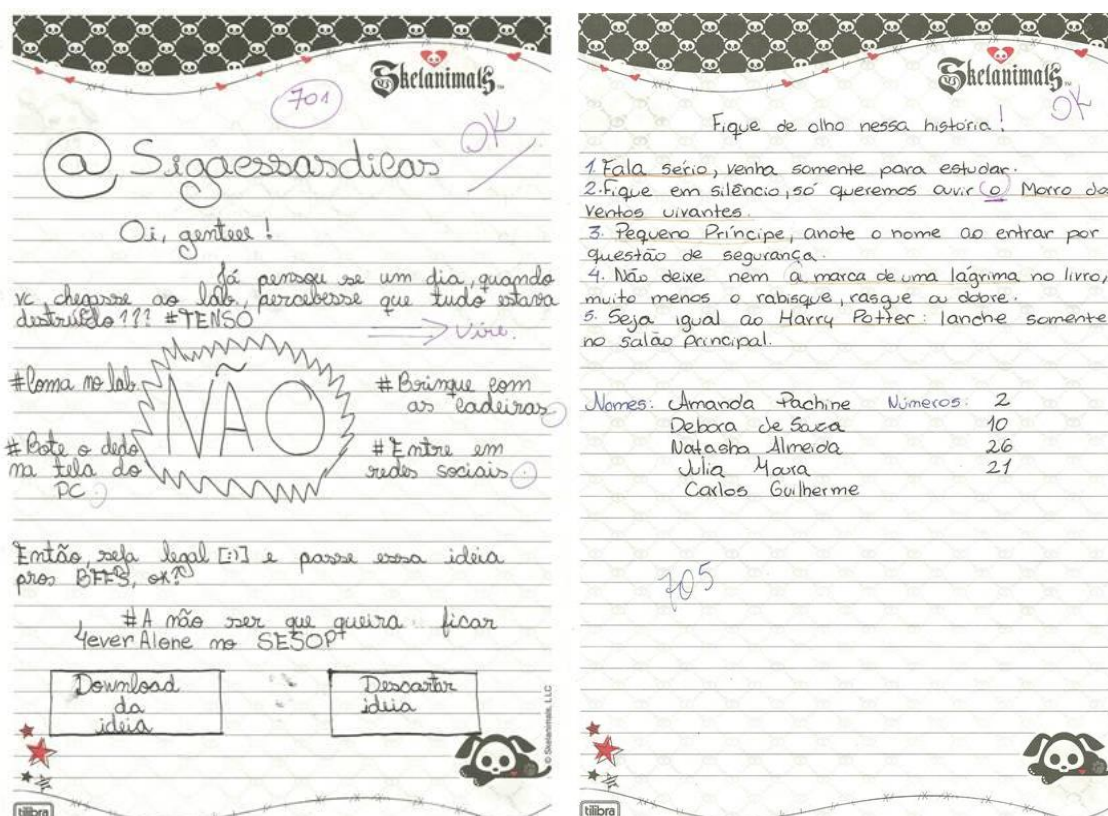 Skelanimals
701
OK
@Sigaessasdicas
Oi, genteee!
Já pensou se um dia, quando
vc chegasse ao lab, percebesse que tudo estava
destruído??? #TENSO
Vire.
NÃO
#Coma no lab.
#Bote o dedo
na tela do
PC.
#Brinque com
as cadeiras.
#Entre em
redes sociais.
Então, seja legal [:)] e passe essa idéia
pros BFFS, ok?
#A não ser que queira ficar
4ever Alone no SESOP
Download
da
idéia
Descartar
idéia
© Skelanimals, LLC
tilibra
Skelanimals
OK
Fique de olho nessa história!
1. Fala sério, venha somente para estudar.
2. Fique em silêncio, só queremos ouvir o Morro dos
Ventos uivantes.
3. Pequeno Príncipe, anote o nome ao entrar por
questão de segurança.
4. Não deixe nem a marca de uma lágrima no livro,
muito menos o rabisque, rasgue ou dobre.
5. Seja igual ao Harry Potter: lanche somente
no salão principal.
Nomes: Amanda Pachine Números: 2
Debora de Souza 10
Natasha Almeida 26
Julia Moura 21
Carlos Guilherme
705
tilibra